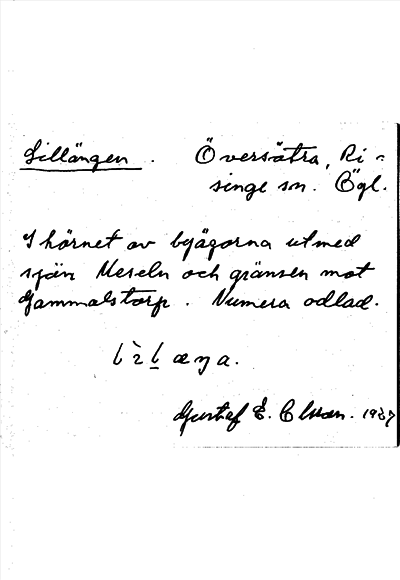 Lillängen. Översätra, Ri-
singe sn. Ögl.
I hörnet av byägorna utmed
sjön Meseln och gränsen mot
Gammalstorp. Numera odlad.
Gustaf E. 19